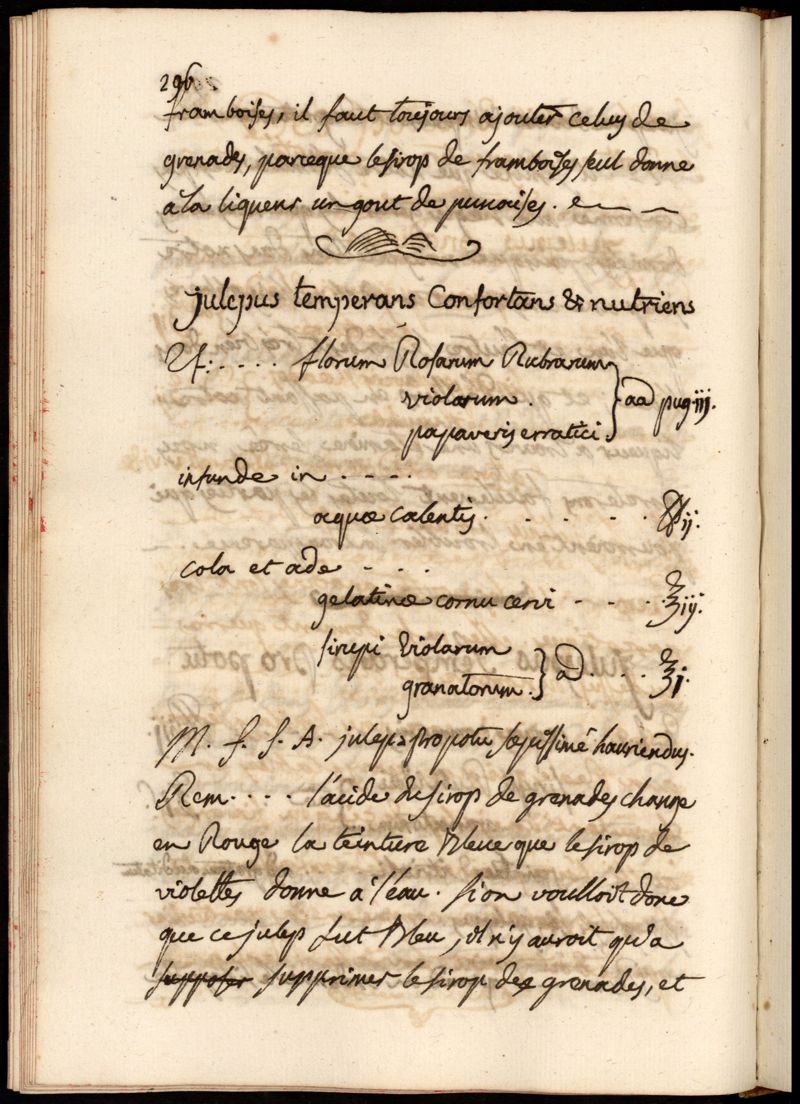 296
framboises, il faut toujours ajouter celuy de
grenades, parceque le sirop de framboises seul donne
a la liqueur un gout de punaises.
julepus temperans Confortans & nutriens
♃: . . . . florum Rosarum Rubrarum
violarum .
papaveris erratici } aa pug. iij.
infunde in - - - -
aquæ calentis . . . . . ℔ ij.
cola et ade - - - .
gelatinæ cornu cervi - - - ℥ iij.
sirupi violarum
granatorum . } a . . . . ℥ j.
M. f. s. A. julep. pro potu sæpissimé hauriendus.
Rem . . . . l'acide du sirop de grenades change
en Rouge la teinture Bleue que le sirop de
violettes donne a l'eau . si on voulloit donc
que ce julep fut Bleu, il n'y auroit qu'a
supposer supprimer le sirop de grenades, et